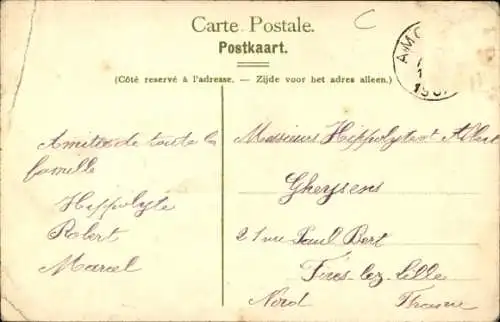 Carte Postale.
Postkaart.
(Côté reservé à l'adresse. — Zijde voor het adres alleen.)
Amitié de toute la
famille
Hippolyte
Robert
Marcel
Messieurs Hippolyte et Albert
Gheysens
21 rue Paul Bert
Fives-lez-Lille
Nord France